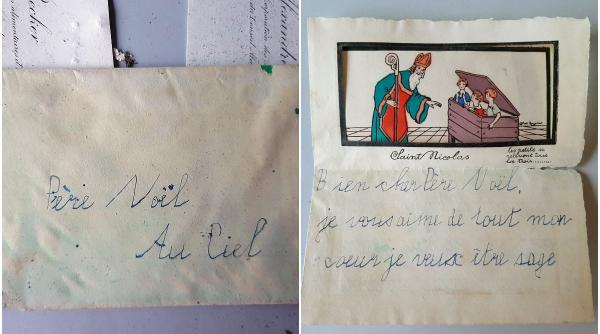 ecker
Alexandre
Père Noël
Au Ciel
Saint Nicolas
les petits se
relèvent tous
les trois.......
Bien cher Père Noël,
je vous aime de tout mon
coeur je veux être sage